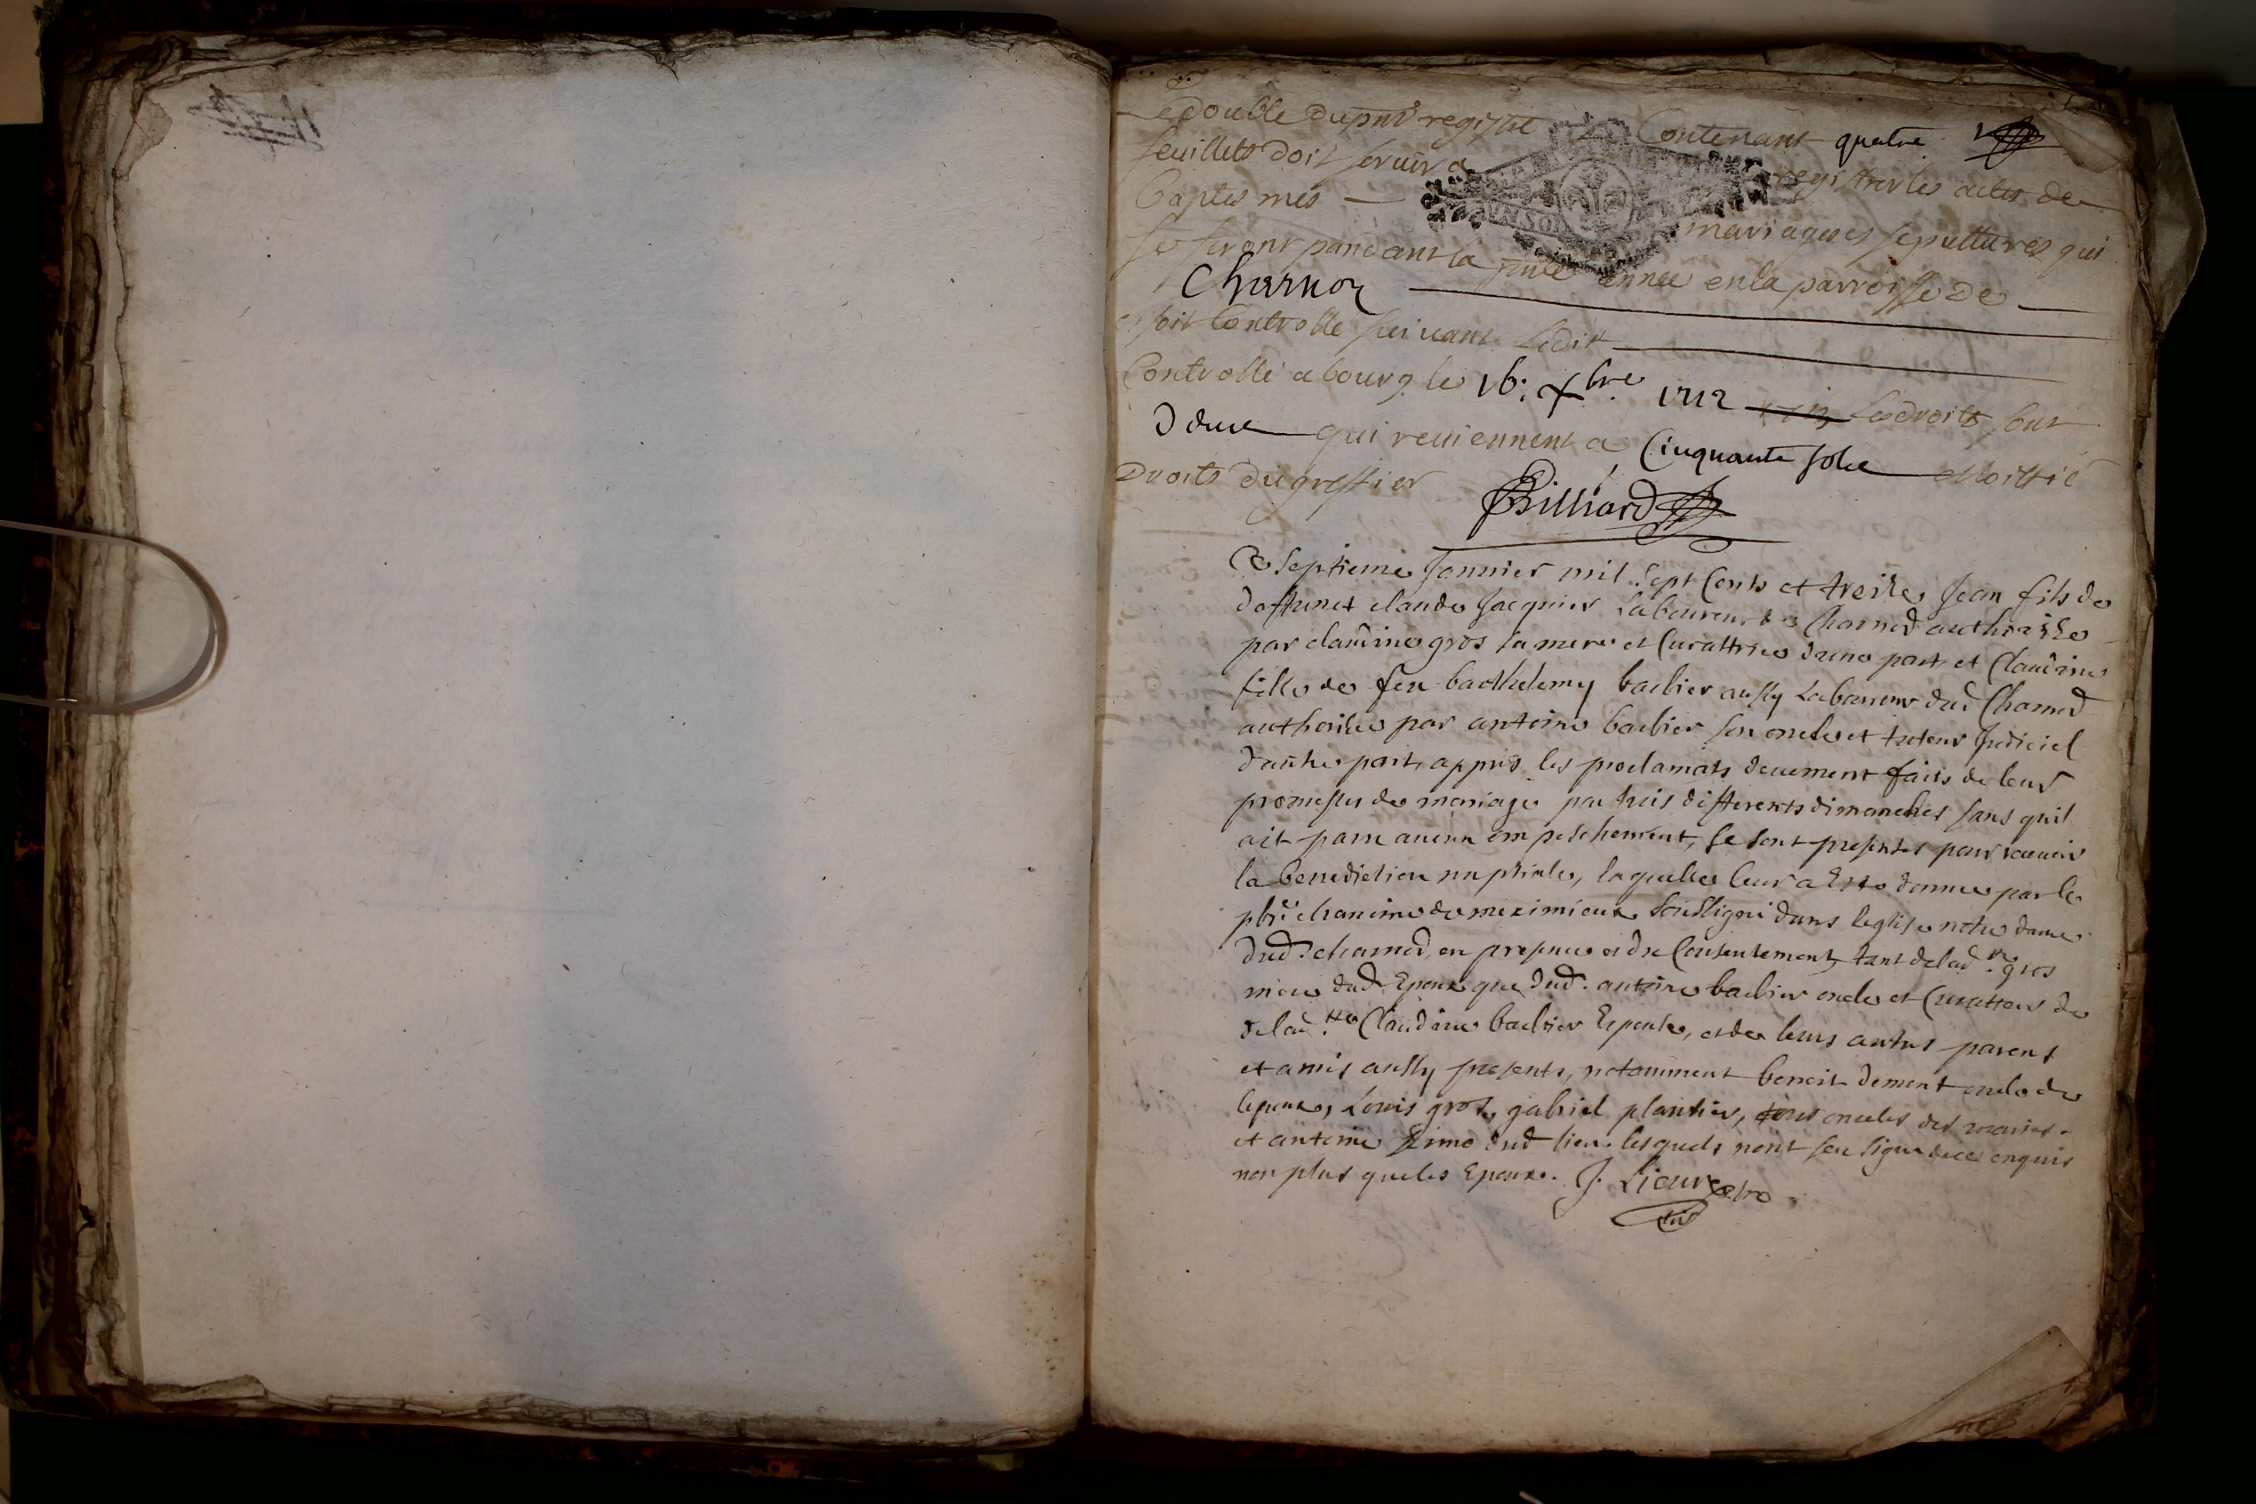 Le double du pnt registre Contenant quatre
feuillets doit servir a registrer les actes de
Baptesmes mariages et sepultures qui
se feront pandant la pnte année en la parroisse de
Charnoz
et soit Controllé suivant Ledit
Controllé a bourg le 16: Xbre 1712 Les droits sont
qui reviennent a Cinquante sols Moittié
Droits du greffier
Billiard
Ce septieme Janvier mil sept Cents et treize Jean fils de
deffunct claude Jacquier Laboureur de Charnod authorizé
par claudine gros sa mere et Curattrice d'une part et Claudine
fille de feu barthelemy barbier aussy Laboureur dud Charnod
authorisée par antoine barbier son oncle et tuteur Judiciel
d'autre part, appres les proclamats deuement faits de leur
promesses de mariage par trois differents dimanches sans quil
ait paru aucun empeschement, se sont presentés pour recevoir
la benediction nuptiale, laquelle leur a Esté donnee par le
pbre chanoine de meximieux soussigné dans leglise notre dame
dud. charnod, en presence et du Consentement, tant de lad. gros
mere dud Epoux que dud. antoine barbier oncle et Curatteur de
de lad. Claudine barbier Epouse, et de leurs autres parens
et amis aussy presents, notamment benoit dement oncle de
lepoux, Louis gros, gabriel plantier, tous oncles des mariés
et antoine dud lieu lesquels nont sceu signer de ce enquis
non plus que les Epoux. J. Lieure pbre